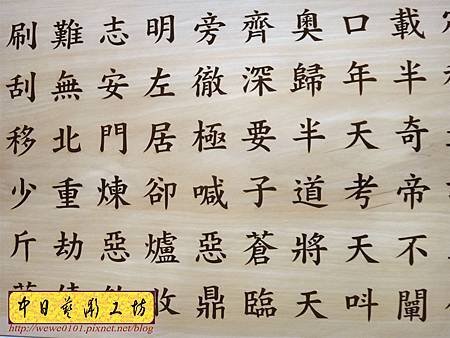 載半奇帝不闡
口年天考天叫
奧歸半道將天
齊深要子蒼臨
旁徹極喊惡鼎
明左居卻爐收
志安門煉惡
難無北重劫
刷刮移少斤
中日藝彫工坊
http://wewe0101.pixnet.net/blog